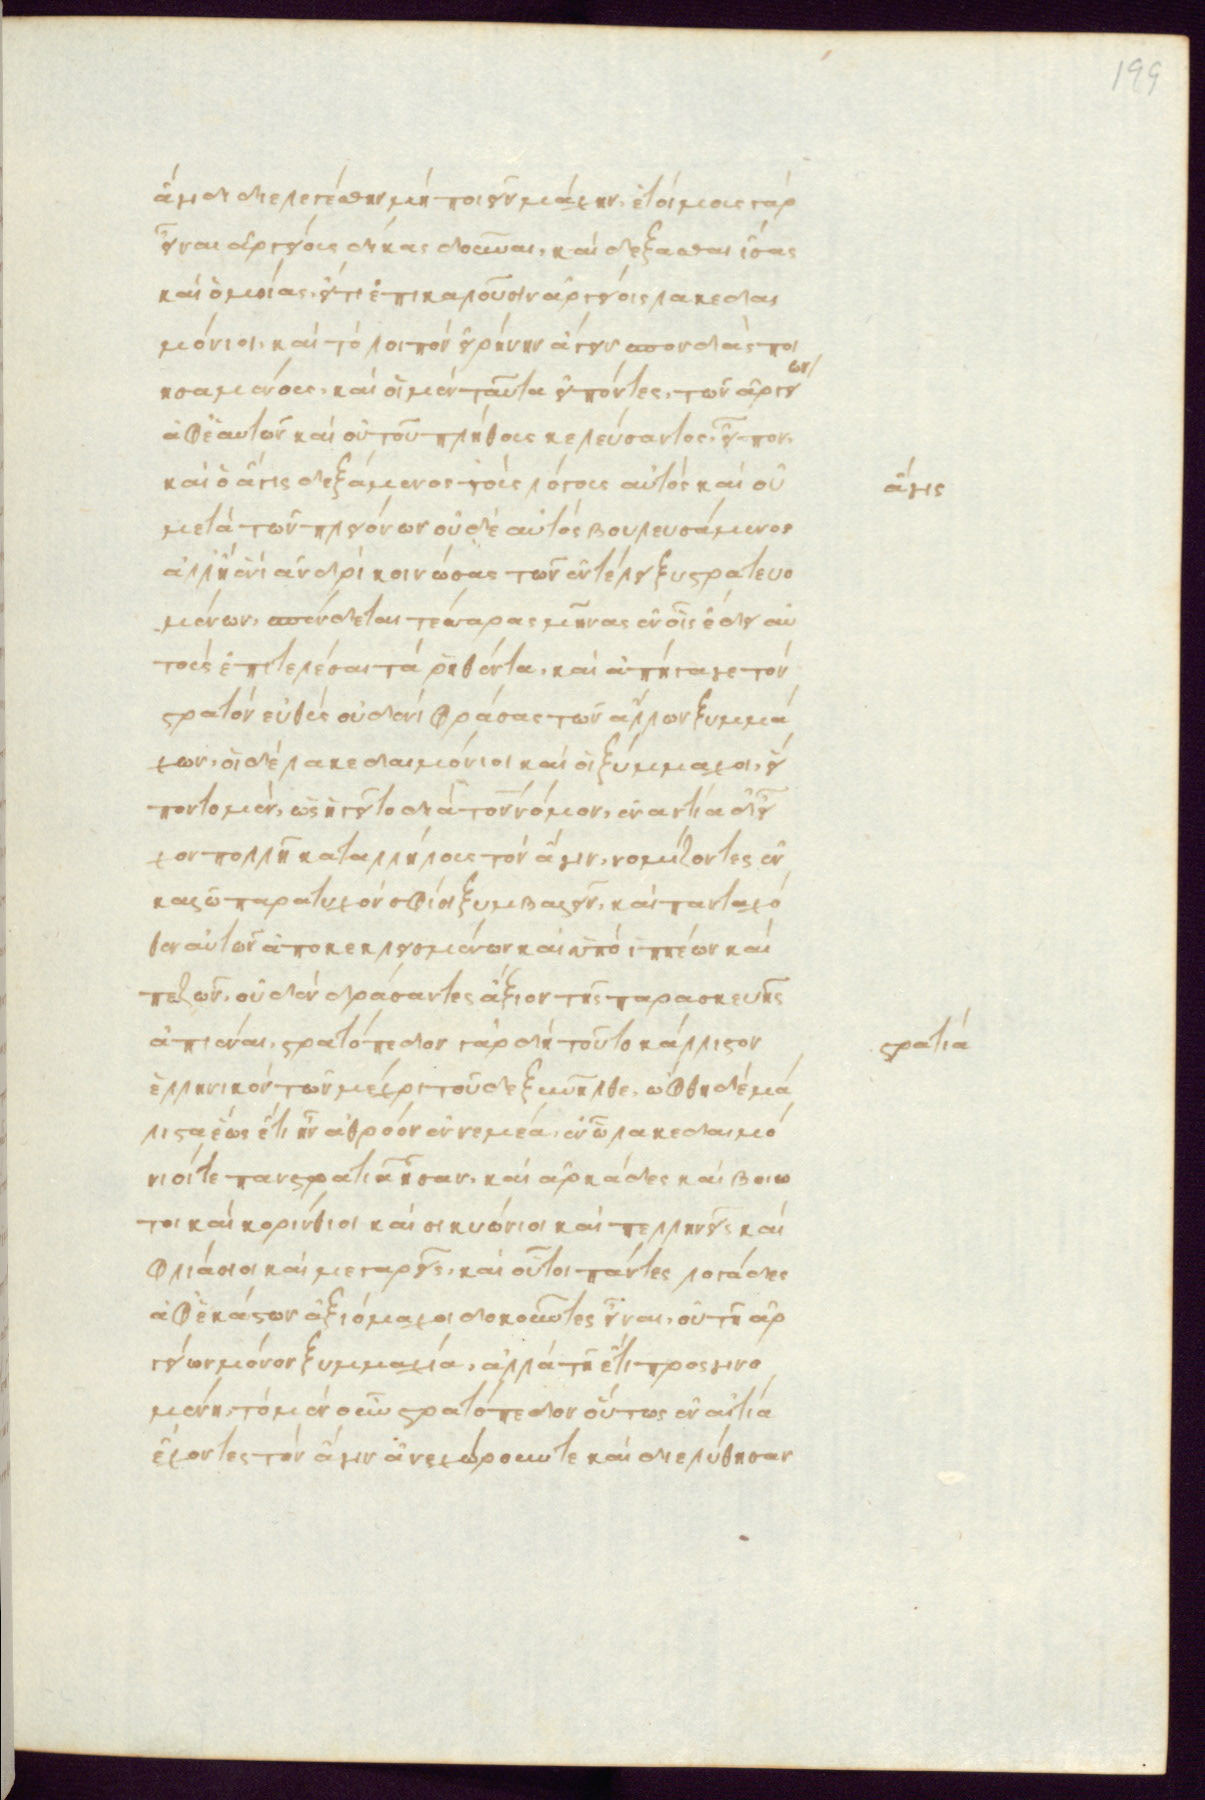 199
ἄγιδι διελεγέσθην μὴ ποιεῖν μάχην. ἑτοίμους γὰρ
εἶναι ἀργείους δίκας δοῦναι, καὶ δέξασθαι ἴσας
καὶ ὁμοίας, εἴτι ἐπικαλοῦσιν ἀργείοις λακεδαι
μόνιοι, καὶ τὸ λοιπὸν εἰρήνην ἄγειν σπονδὰς ποι
ησαμένους, καὶ οἱ μὲν ταῦτα εἰπόντες, τῶν ἀργείων
ἀφ' ἑαυτῶν καὶ οὐ τοῦ πλήθους κελεύσαντος, εἶπον,
καὶ ὁ ἄγις δεξάμενος τοὺς λόγους αὐτὸς καὶ οὐ
ἄγις
μετὰ τῶν πλειόνων οὐδὲ αὐτὸς βουλευσάμενος
ἀλλ' ἢ ἑνὶ ἀνδρὶ κοινώσας τῶν ἐν τέλει ξυστρατευο
μένων, σπένδεται τέσσαρας μῆνας ἐν οἷς ἔδει αὐ
τοὺς ἐπιτελέσαι τὰ ῥηθέντα, καὶ ἀπήγαγε τὸν
στρατὸν εὐθὺς οὐδενὶ φράσας τῶν ἄλλων ξυμμά
χων, οἱ δὲ λακεδαιμόνιοι καὶ οἱ ξύμμαχοι, εἵ
ποντο μὲν, ὡς ἡγεῖτο διὰ τὸν νόμον, ἐν αἰτία δ' εἶ
χον πολλῆ κατ' ἀλλήλους τὸν ἄγιν, νομίζοντες ἐν
καλῶ παρατυχὸν σφίσι ξυμβαλεῖν, καὶ πανταχό
θεν αὐτῶν ἀποκεκλεισμένων καὶ ὑπὸ ἱππέων καὶ
πεζῶν, οὐδὲν δράσαντες ἄξιον τῆς παρασκευῆς
ἀπιέναι, στρατόπεδον γὰρ δὴ τοῦτο κάλλιστον
στρατιά
ἑλληνικὸν τῶν μέχρι τοῦδε ξυνῆλθε, ὤφθη δὲ μά
λιστα ἕως ἔτι ἦν ἀθρόον ἐν νεμέα, ἐν ὧ λακεδαιμό
νιοί τε πανστρατιᾶ ἦσαν, καὶ ἀρκάδες καὶ βοιω
τοὶ καὶ κορίνθιοι καὶ σικυώνιοι καὶ πελληνεῖς καὶ
φλιάσιοι καὶ μεγαρεῖς, καὶ οὗτοι πάντες λογάδες
ἀφ' ἑκάστων ἀξιόμαχοι δοκοῦντες εἶναι, οὐ τῆ ἀρ
γείων μόνον ξυμμαχία, ἀλλὰ τῆ ἔτι προσγενο
μένη, τὸ μὲν οὖν στρατόπεδον οὕτως ἐν αἰτία
ἔχοντες τὸν ἄγιν ἀνεχώρουν τε καὶ διελύθησαν